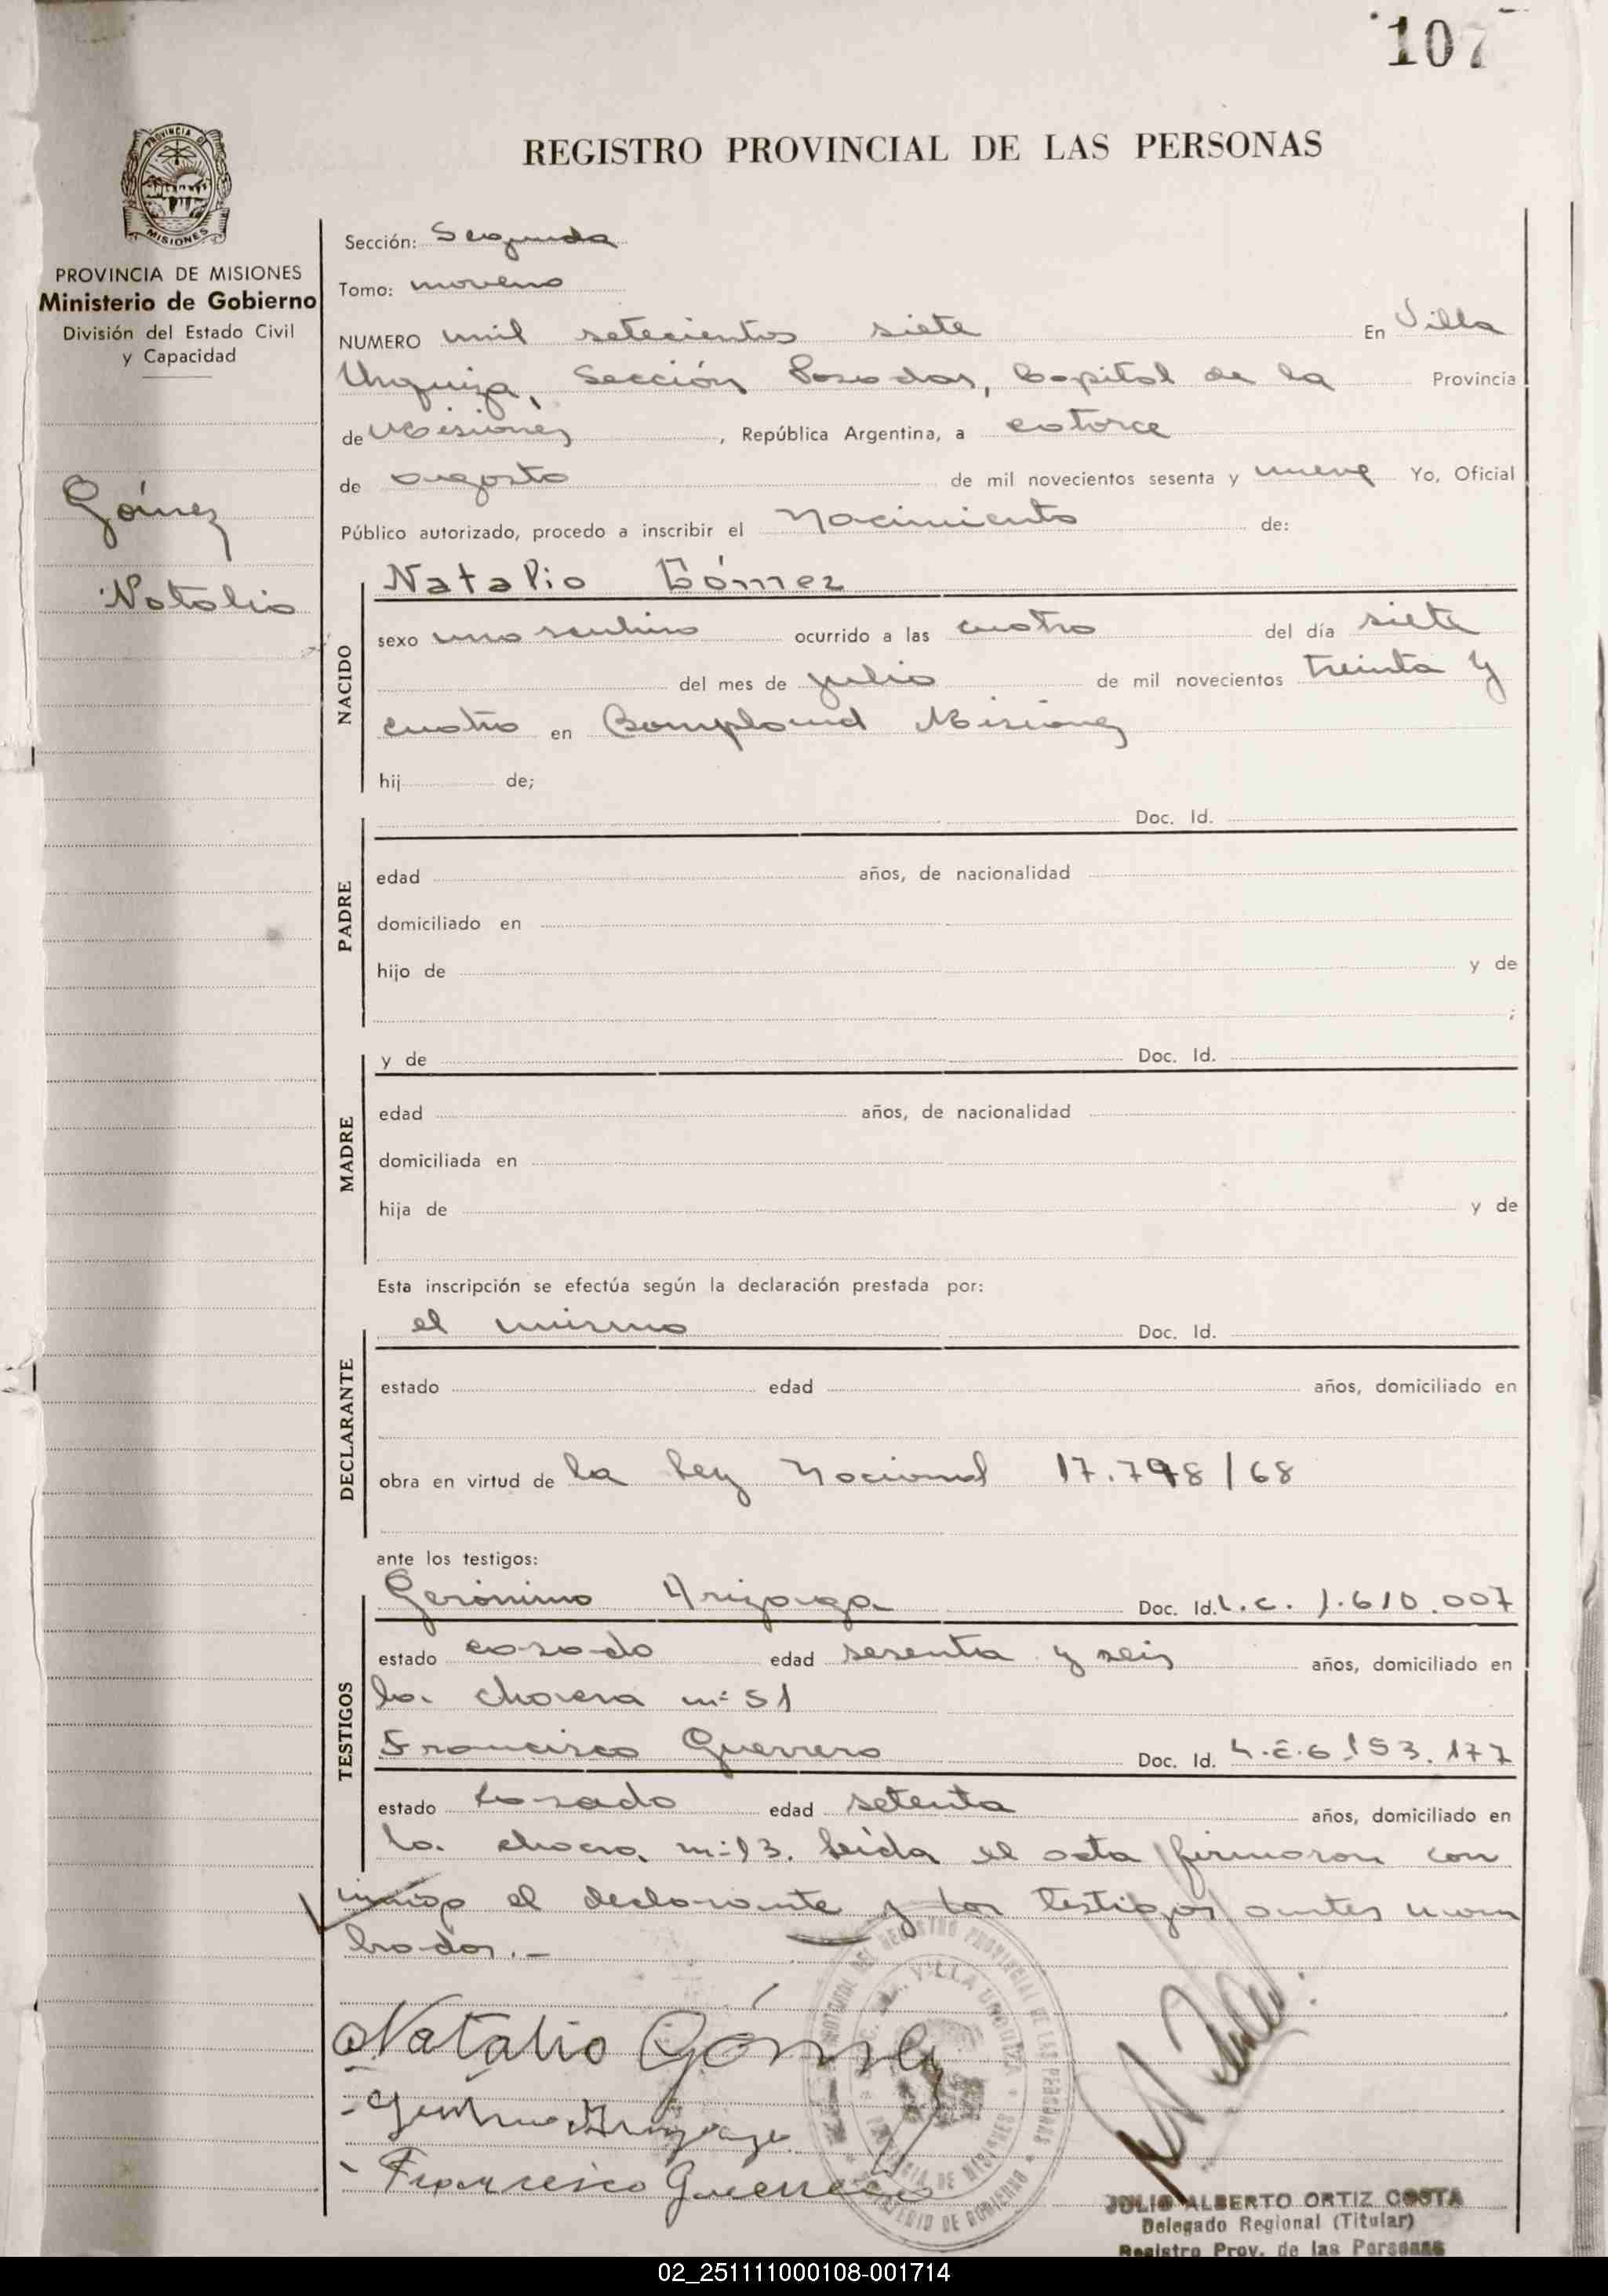 107
REGISTRO PROVINCIAL DE LAS PERSONAS
PROVINCIA DE MISIONES
PROVINCIA DE MISIONES
Ministerio de Gobierno
División del Estado Civil
y Capacidad
Gómez
Natalio
Sección: Segunda
Tomo: noveno
NUMERO mil setecientos siete En Villa
Urquiza, Sección Posadas, Capital de la Provincia
de Misiones, República Argentina, a catorce
de agosto de mil novecientos sesenta y nueve Yo, Oficial
Público autorizado, procedo a inscribir el Nacimiento de:
NACIDO
Natalio Gómez
sexo masculino ocurrido a las cuatro del día siete
del mes de julio de mil novecientos treinta y
cuatro en Bompland Misiones
hij de;
PADRE
Doc. Id.
edad años, de nacionalidad
domiciliado en
hijo de y de
;
MADRE
y de Doc. Id.
edad años, de nacionalidad
domiciliada en
hija de y de
Esta inscripción se efectúa según la declaración prestada por:
DECLARANTE
el mismo Doc. Id.
estado edad años, domiciliado en
obra en virtud de la ley Nacional 17.798/68
ante los testigos:
TESTIGOS
Gerónimo Arizaga Doc. Id. L.C. 1.610.007
estado casado edad sesenta y seis años, domiciliado en
la chacra nº 51
Francisco Guerrero Doc. Id. 6.153.177
estado casado edad setenta años, domiciliado en
la chacra nº 13. Leída el acta firmaron con
migo el declarante y los testigos antes nom
brados.-
Natalio Gómez
Arizaga
- Francisco Guerrero
VILLA URQUIZA
PROVINCIA DE MISIONES
MINISTERIO DE GOBIERNO
REGISTRO PROVINCIAL DE LAS PERSONAS
JULIO ALBERTO ORTIZ COSTA
Delegado Regional (Titular)
Registro Prov. de las Personas
02_251111000108-001714